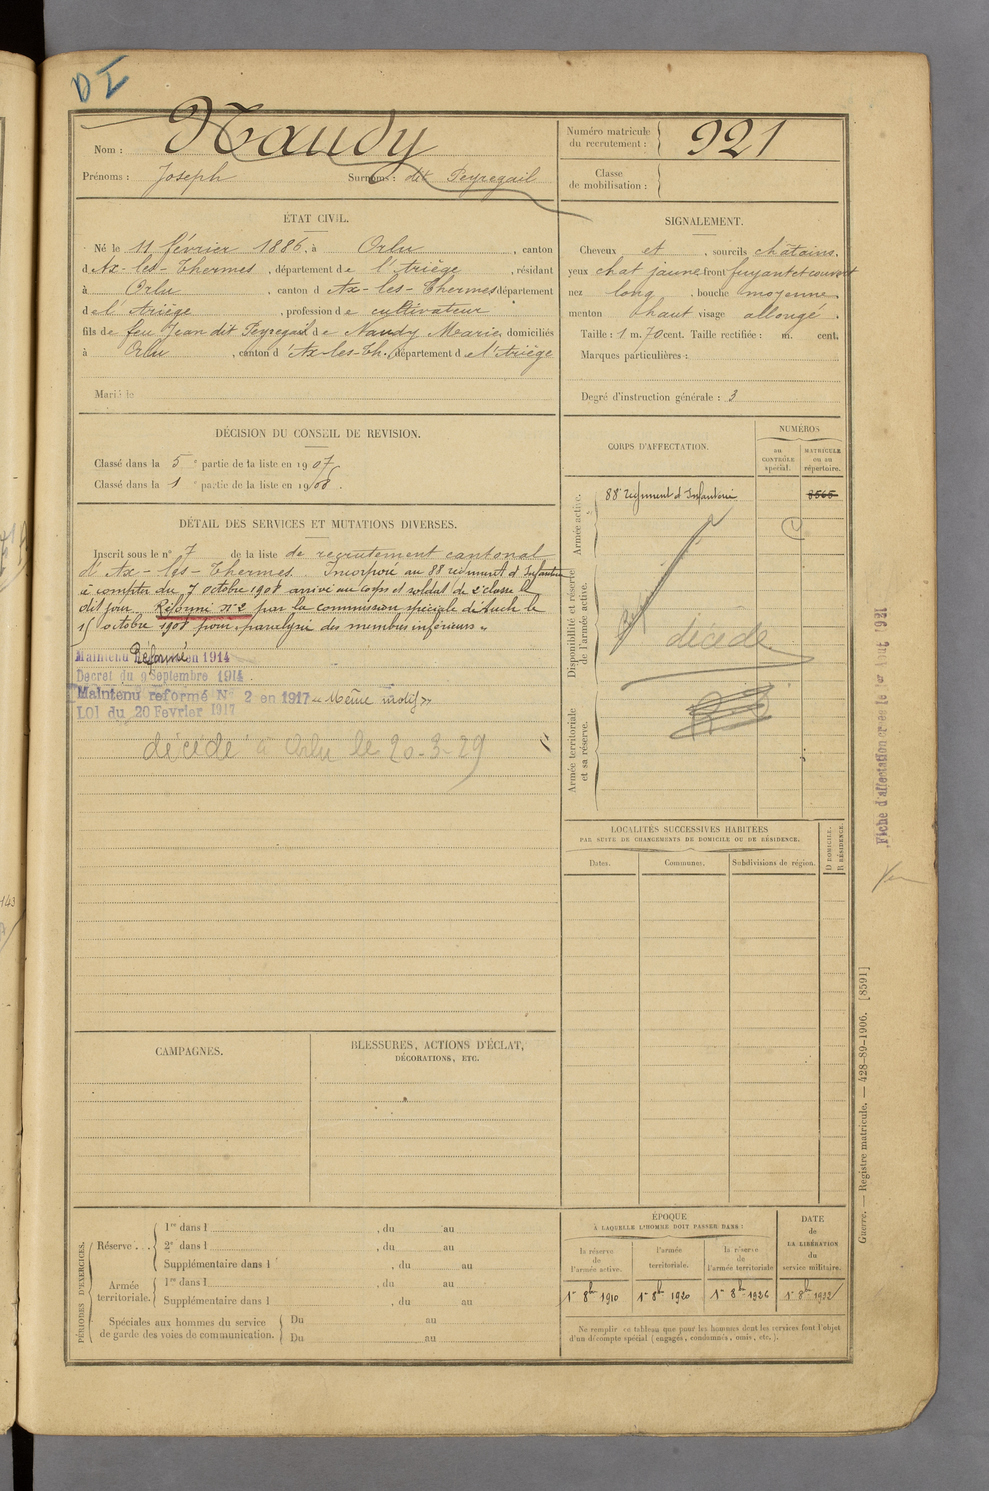 DI
Nom : Naudy
Prénoms : Joseph Surnoms : dit Peyregail
Numéro matricule du recrutement : 921
Classe de mobilisation :
ÉTAT CIVIL.
Né le 11 février 1886, à Orlu, canton
d'Ax-les-Thermes, département de l'Ariège, résidant
à Orlu, canton d'Ax-les-Thermes département
de l'Ariège, profession de cultivateur
fils de feu Jean dit Peyregail et de Naudy Marie, domiciliés
à Orlu, canton d'Ax-les-Th., département de l'Ariège
Marié le
SIGNALEMENT.
Cheveux et, sourcils châtains.
yeux chat jaune front fuyant et couvert
nez long, bouche moyenne.
menton haut visage allongé.
Taille : 1 m. 70 cent. Taille rectifiée : m. cent.
Marques particulières :
Degré d'instruction générale : 3
DÉCISION DU CONSEIL DE REVISION.
Classé dans la 5e partie de la liste en 1907
Classé dans la 1e partie de la liste en 1908.
DÉTAIL DES SERVICES ET MUTATIONS DIVERSES.
Inscrit sous le n° 7 de la liste de recrutement cantonal
d'Ax-les-Thermes. Incorporé au 88 régiment d'Infanterie
à compter du 7 octobre 1908 arrivé au corps et soldat de 2e classe le
dit jour. Réformé n° 2 par la commission spéciale de Auch le
15 octobre 1908 pour "paralysie des membres inférieurs"
Maintenu Réformé en 1914
Décret du 9 Septembre 1914
Maintenu reformé N° 2 en 1917 "Même motif"
LOI du 20 Fevrier 1917
décédé à Orlu le 20-3-29
CORPS D'AFFECTATION.
NUMÉROS
au CONTRÔLE spécial.
MATRICULE ou au répertoire.
Armée active.
88e régiment d'Infanterie
8565
Disponibilité et réserve de l'armée active.
décédé
Armée territoriale et sa réserve.
LOCALITÉS SUCCESSIVES HABITÉES
PAR SUITE DE CHANGEMENTS DE DOMICILE OU DE RÉSIDENCE.
Dates.
Communes.
Subdivisions de région.
D DOMICILE.
R RÉSIDENCE.
CAMPAGNES.
BLESSURES, ACTIONS D'ÉCLAT,
DÉCORATIONS, ETC.
PÉRIODES D'EXERCICES.
Réserve . . .
1re dans l , du au
2e dans l , du au
Supplémentaire dans l , du au
Armée territoriale.
1re dans l , du au
Supplémentaire dans l , du au
Spéciales aux hommes du service de garde des voies de communication.
Du au
Du au
ÉPOQUE
À LAQUELLE L'HOMME DOIT PASSER DANS :
la réserve de l'armée active.
l'armée territoriale.
la réserve de l'armée territoriale
DATE de LA LIBÉRATION du service militaire.
1er 8bre 1910
1er 8bre 1920
1er 8bre 1926
1er 8bre 1932
Ne remplir ce tableau que pour les hommes dont les services font l'objet
d'un décompte spécial (engagés, condamnés, omis, etc.).
Fiche d'affectation créée le 1er Août 1921
Guerre. — Registre matricule. — 428-89-1906. [8591]